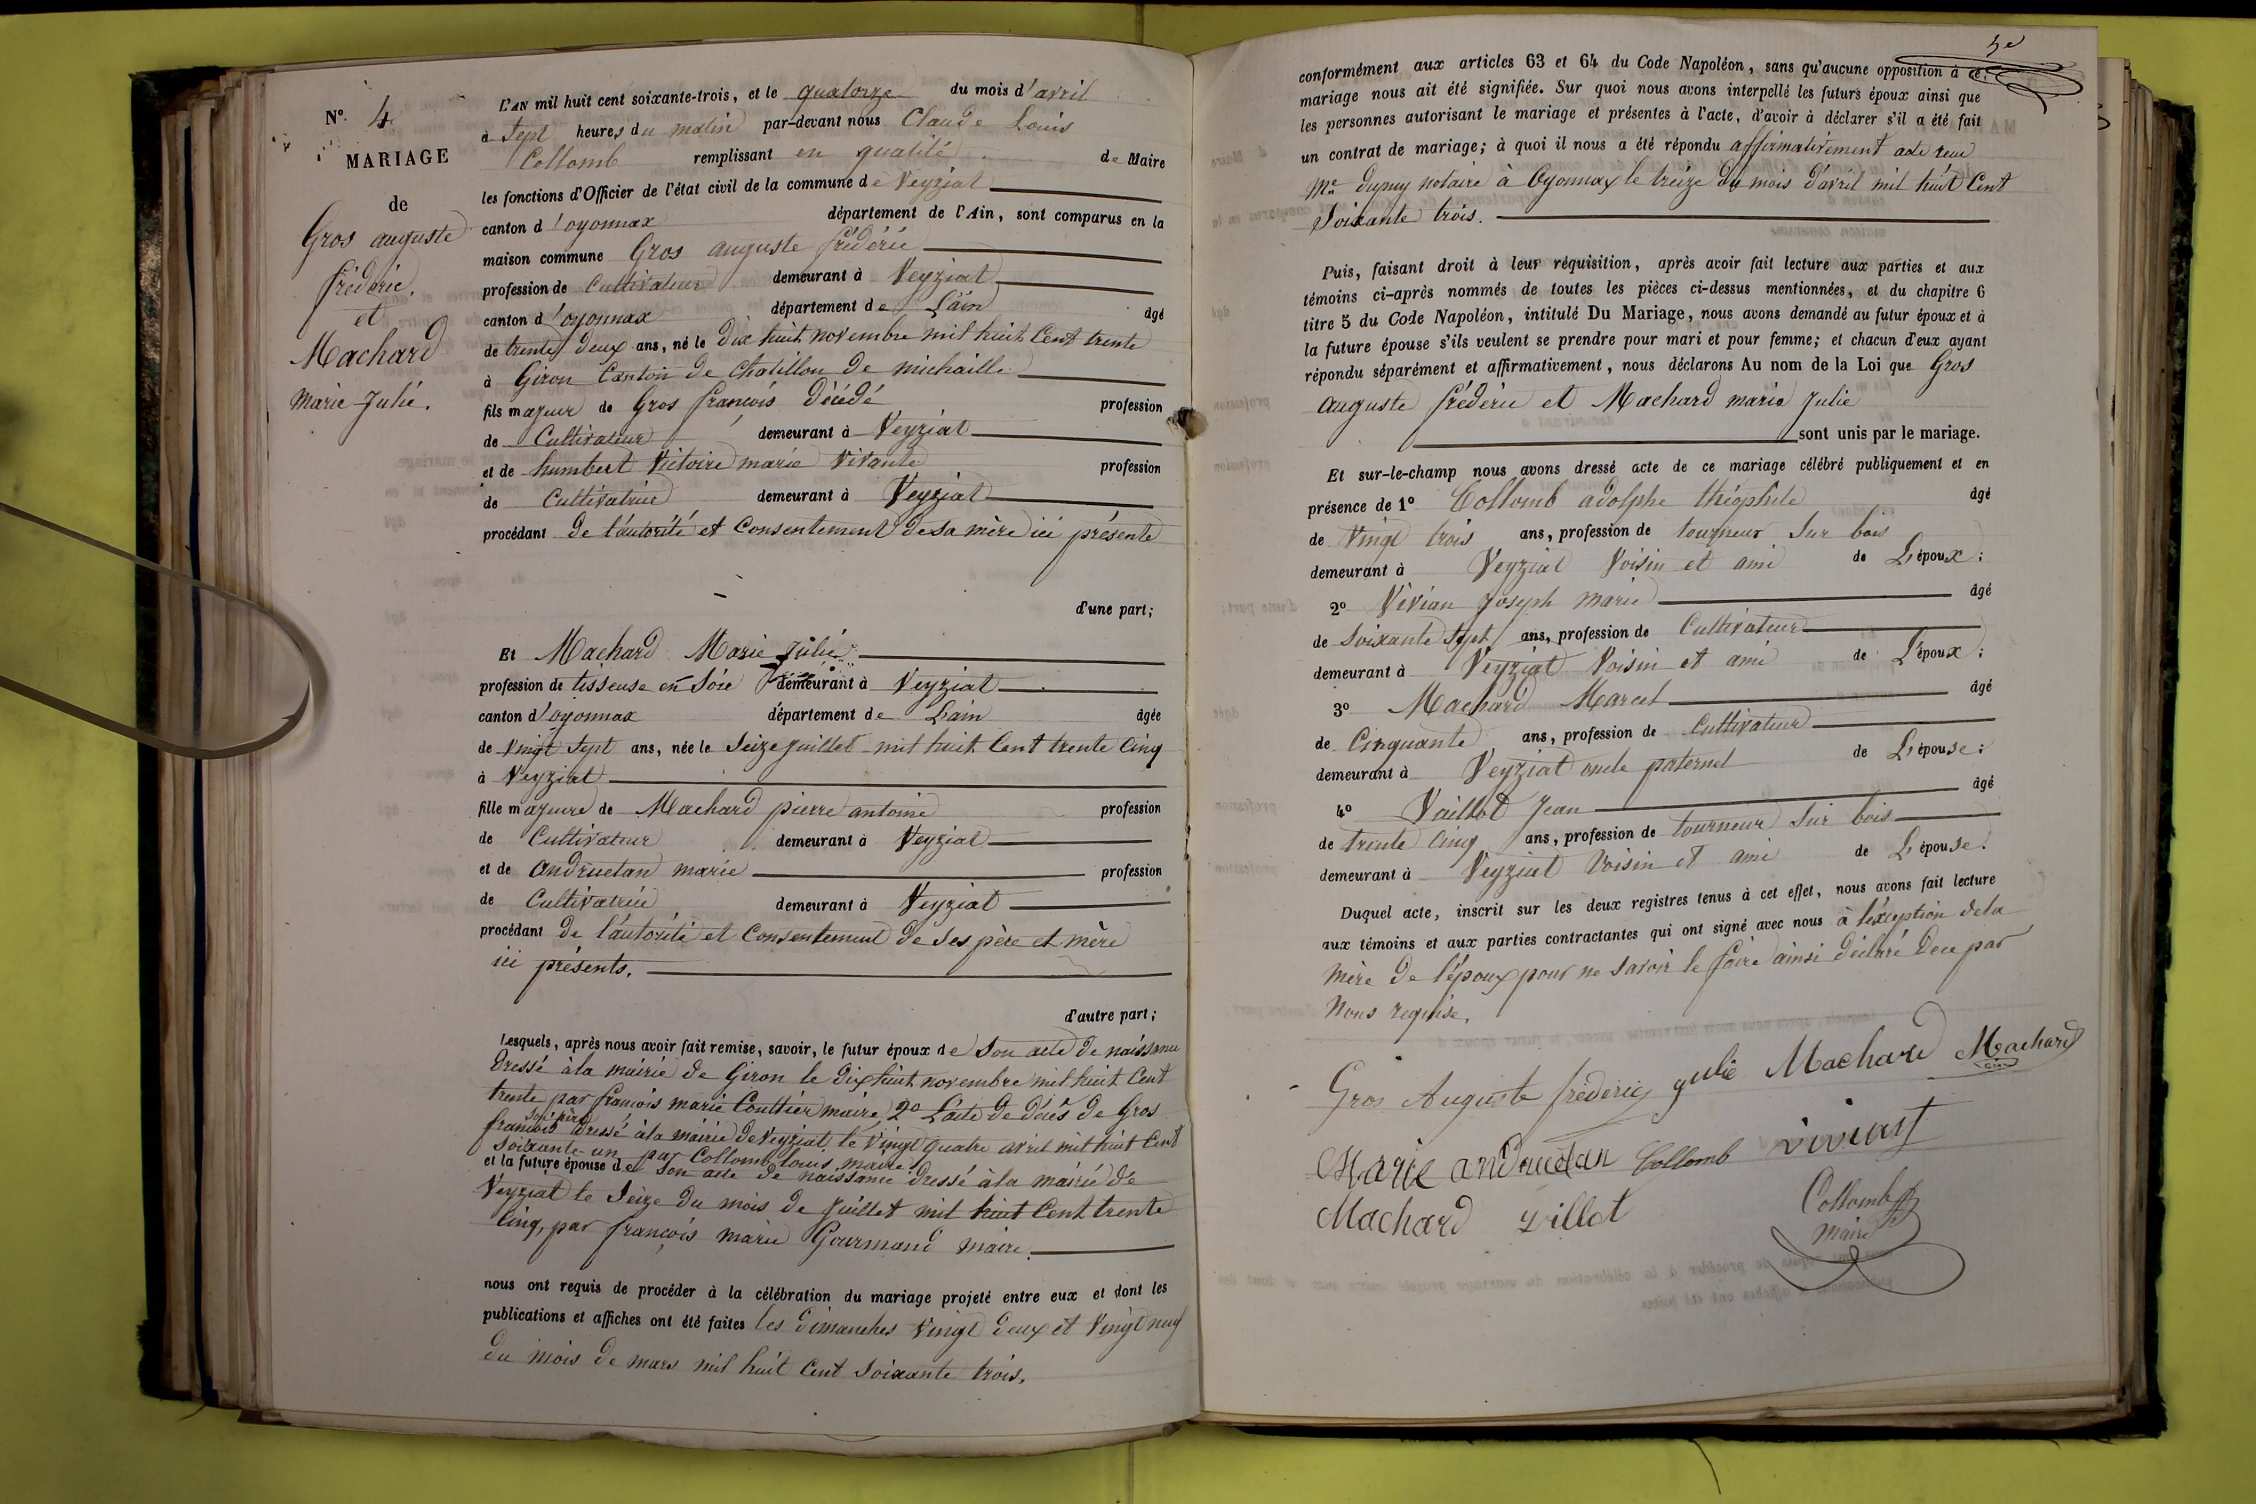 N° 4
MARIAGE
de
Gros auguste
fréderic.
et
Machard
marie Julie.
L'AN mil huit cent soixante-trois, et le quatorze du mois d'avril
à Sept heures du matin par-devant nous Claude Louis
Collomb remplissant en qualité de Maire
les fonctions d'Officier de l'état civil de la commune de Veyziat
canton d'oyonnax département de l'Ain, sont comparus en la
maison commune Gros auguste fréderic
profession de Cultivateur demeurant à Veyziat
canton d'oyonnax département de L'ain âgé
de trente deux ans, né le dix huit novembre mil huit Cent trente
à Giron Canton de Chatillon de michaille
fils majeur de Gros françois Décédé profession
de Cultivateur demeurant à Veyziat
et de humbert Victoire marie Vivante profession
de Cultivatrice demeurant à Veyziat
procédant de l'autorité et Consentement de sa mère ici présente
d'une part;
Et Machard Marie Julie
profession de tisseuse en Soie demeurant à Veyziat
canton d'oyonnax département de Lain âgée
de Vingt Sept ans, née le Seize juillet mil huit Cent trente Cinq
à Veyziat
fille majeure de Machard pierre antoine profession
de Cultivateur demeurant à Veyziat
et de andruetan marie profession
de Cultivatrice demeurant à Veyziat
procédant de l'autorité et Consentement de Ses père et mère
ici présents.
d'autre part;
Lesquels, après nous avoir fait remise, savoir, le futur époux de Son acte de naissance
Dressé à la mairie de Giron le dix huit novembre mil huit Cent
trente par françois marie Couttier maire, 2° L'acte de décès de Gros
françois son père dressé à la mairie de Veyziat le Vingt quatre avril mil huit Cent
Soixante un par Collomb louis maire
et la future épouse de Son acte de naissance dressé à la mairie de
Veyziat le Seize du mois de Juillet mil huit Cent trente
Cinq, par françois marie Gourmand maire.
nous ont requis de procéder à la célébration du mariage projeté entre eux et dont les
publications et affiches ont été faites les dimanches Vingt deux et Vingt neuf
du mois de mars mil huit Cent Soixante trois.
conformément aux articles 63 et 64 du Code Napoléon, sans qu'aucune opposition à ce
mariage nous ait été signifiée. Sur quoi nous avons interpellé les futurs époux ainsi que
les personnes autorisant le mariage et présentes à l'acte, d'avoir à déclarer s'il a été fait
un contrat de mariage; à quoi il nous a été répondu affirmativement acte reçu
Me dupuy notaire à Oyonnax le treize du mois d'avril mil huit Cent
Soixante trois.
Puis, faisant droit à leur réquisition, après avoir fait lecture aux parties et aux
témoins ci-après nommés de toutes les pièces ci-dessus mentionnées, et du chapitre 6
titre 5 du Code Napoléon, intitulé Du Mariage, nous avons demandé au futur époux et à
la future épouse s'ils veulent se prendre pour mari et pour femme; et chacun d'eux ayant
répondu séparément et affirmativement, nous déclarons Au nom de la Loi que Gros
auguste fréderic et Machard marie Julie
sont unis par le mariage.
Et sur-le-champ nous avons dressé acte de ce mariage célébré publiquement et en
présence de 1° Collomb adolphe théophile âgé
de Vingt trois ans, profession de tourneur Sur bois
demeurant à Veyziat Voisin et ami de L'époux;
2° Vivian Joseph marie âgé
de Soixante Sept ans, profession de Cultivateur
demeurant à Veyziat Voisin et ami de L'époux;
3° Machard Marcel âgé
de Cinquante ans, profession de Cultivateur
demeurant à Veyziat oncle paternel de L'épouse;
4° Vaillot Jean âgé
de trente Cinq ans, profession de tourneur Sur bois
demeurant à Veyziat Voisin et ami de L'épouse.
Duquel acte, inscrit sur les deux registres tenus à cet effet, nous avons fait lecture
aux témoins et aux parties contractantes qui ont signé avec nous à l'éxception de la
mère de l'époux pour ne savoir le faire ainsi déclaré de ce par
Nous requise.
Gros Auguste fréderic Julie Machard Machard
Marie andruetan Collomb vivian
Machard villot Collomb
Maire